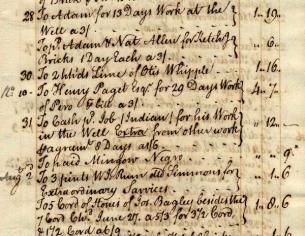 28 To Adam for 13 Days Work at the
Well a 3/. 1.. 19..
To pd Adam & Nat Allen for fetch
Bricks 1 Day Each a 3/. „ 6..
30 To 2 hhds Lime of Otis Whipple 1.. 16..
10 To Henry Paget Esqr. for 29 Days Work
of Pero 4.. 7..
31 To Cash pd. Job (Indian) for his Work
in the Well Extra from other work
8 Days a 1/6 „ 12..
To paid Mingow Negro „ „ 9
Augst 2d To 3 pints W I Rum old Timmons for
Extraordinary Services 1.. 6
To 5 Cord of Stones of Jos. Bagley besides the
7 Cord June 27. a 5/3 for 3 1/2 Cord, 1.. 8.. 6
& 1 1/2 Cord a 6/9